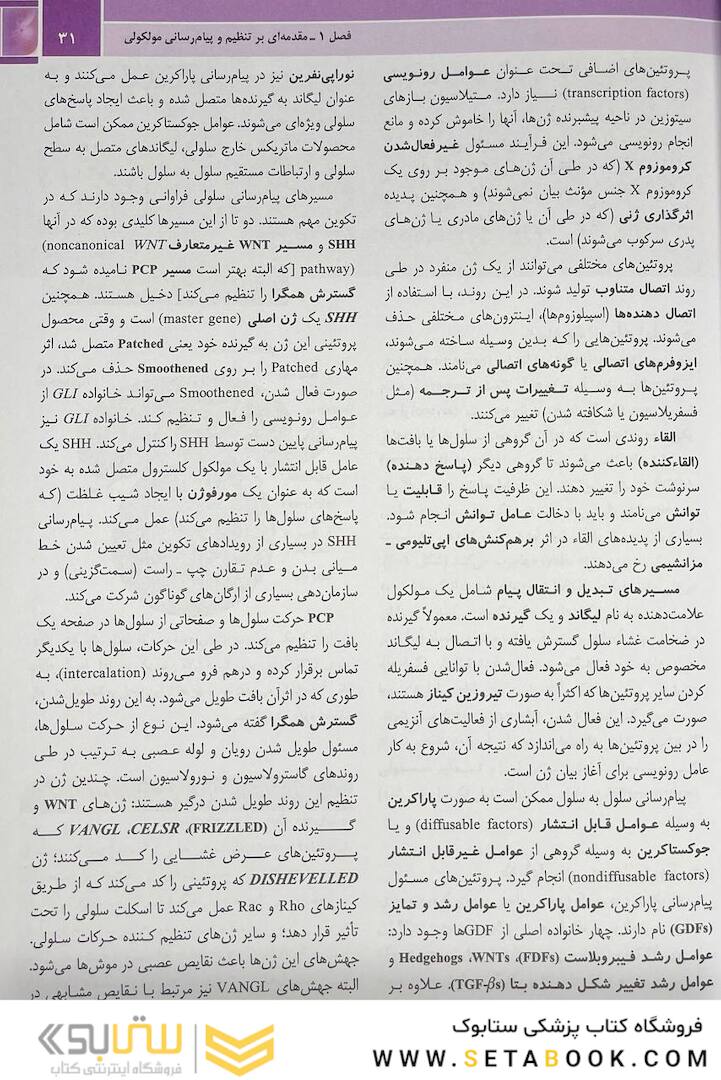 فصل ۱ ـ مقدمه‌ای بر تنظیم و پیام‌رسانی مولکولی
۳۱
پروتئین‌های اضافی تحت عنوان عوامل رونویسی
(transcription factors) نیاز دارد. متیلاسیون بازهای
سیتوزین در ناحیه پیشبرنده ژن‌ها، آنها را خاموش کرده و مانع
انجام رونویسی می‌شود. این فرآیند مسئول غیرفعال‌شدن
کروموزوم X (که در طی آن ژن‌های موجود بر روی یک
کروموزوم X جنس مؤنث بیان نمی‌شوند) و همچنین پدیده
اثرگذاری ژنی (که در طی آن یا ژن‌های مادری یا ژن‌های
پدری سرکوب می‌شوند) است.
پروتئین‌های مختلفی می‌توانند از یک ژن منفرد در طی
روند اتصال متناوب تولید شوند. در این روند، با استفاده از
اتصال دهنده‌ها (اسپیلوزوم‌ها)، اینترون‌های مختلفی حذف
می‌شوند. پروتئین‌هایی را که بدین وسیله ساخته می‌شوند،
ایزوفرم‌های اتصالی یا گونه‌های اتصالی می‌نامند. همچنین
پروتئین‌ها به وسیله تغییرات پس از ترجمه (مثل
فسفریلاسیون یا شکافته شدن) تغییر می‌کنند.
القاء روندی است که در آن گروهی از سلول‌ها یا بافت‌ها
(القاءکننده) باعث می‌شوند تا گروهی دیگر (پاسخ دهنده)
سرنوشت خود را تغییر دهند. این ظرفیت پاسخ را قابلیت یا
توانش می‌نامند و باید با دخالت عامل توانش انجام شود.
بسیاری از پدیده‌های القاء در اثر برهم‌کنش‌های اپی‌تلیومی ـ
مزانشیمی رخ می‌دهند.
مسیرهای تبدیل و انتقال پیام شامل یک مولکول
علامت‌دهنده به نام لیگاند و یک گیرنده است. معمولاً گیرنده
در ضخامت غشاء سلول گسترش یافته و با اتصال به لیگاند
مخصوص به خود فعال می‌شود. فعال‌شدن با توانایی فسفریله
کردن سایر پروتئین‌ها که اکثراً به صورت تیروزین کیناز هستند،
صورت می‌گیرد. این فعال شدن، آبشاری از فعالیت‌های آنزیمی
را در بین پروتئین‌ها به راه می‌اندازد که نتیجه آن، شروع به کار
عامل رونویسی برای آغاز بیان ژن است.
پیام‌رسانی سلول به سلول ممکن است به صورت پاراکرین
به وسیله عوامل قابل انتشار (diffusable factors) و یا
جوکستاکرین به وسیله گروهی از عوامل غیرقابل انتشار
(nondiffusable factors) انجام گیرد. پروتئین‌های مسئول
پیام‌رسانی پاراکرین، عوامل پاراکرین یا عوامل رشد و تمایز
(GDFs) نام دارند. چهار خانواده اصلی از GDFها وجود دارد:
عوامل رشد فیبروبلاست (FDFs)، Hedgehogs ،WNTs و
عوامل رشد تغییر شکل دهنده بتا (TGF-βs). علاوه بر
نوراپی‌نفرین نیز در پیام‌رسانی پاراکرین عمل می‌کنند و به
عنوان لیگاند به گیرنده‌ها متصل شده و باعث ایجاد پاسخ‌های
سلولی ویژه‌ای می‌شوند. عوامل جوکستاکرین ممکن است شامل
محصولات ماتریکس خارج سلولی، لیگاندهای متصل به سطح
سلولی و ارتباطات مستقیم سلول به سلول باشند.
مسیرهای پیام‌رسانی سلولی فراوانی وجود دارند که در
تکوین مهم هستند. دو تا از این مسیرها کلیدی بوده که در آنها
SHH و مسیر WNT غیرمتعارف (noncanonical WNT
pathway) [که البته بهتر است مسیر PCP نامیده شود که
گسترش همگرا را تنظیم می‌کند] دخیل هستند. همچنین
SHH یک ژن اصلی (master gene) است و وقتی محصول
پروتئینی این ژن به گیرنده خود یعنی Patched متصل شد، اثر
مهاری Patched را بر روی Smoothened حذف می‌کند. در
صورت فعال شدن، Smoothened می‌تواند خانواده GLI از
عوامل رونویسی را فعال و تنظیم کند. خانواده GLI نیز
پیام‌رسانی پایین دست توسط SHH را کنترل می‌کند. SHH یک
عامل قابل انتشار با یک مولکول کلسترول متصل شده به خود
است که به عنوان یک مورفوژن با ایجاد شیب غلظت (که
پاسخ‌های سلول‌ها را تنظیم می‌کند) عمل می‌کند. پیام‌رسانی
SHH در بسیاری از رویدادهای تکوین مثل تعیین شدن خط
میانی بدن و عدم تقارن چپ ـ راست (سمت‌گزینی) و در
سازمان‌دهی بسیاری از ارگان‌های گوناگون شرکت می‌کند.
PCP حرکت سلول‌ها و صفحاتی از سلول‌ها در صفحه یک
بافت را تنظیم می‌کند. در طی این حرکات، سلول‌ها با یکدیگر
تماس برقرار کرده و درهم فرو می‌روند (intercalation)، به
طوری که در اثرآن بافت طویل می‌شود. به این روند طویل‌شدن،
گسترش همگرا گفته می‌شود. این نوع از حرکت سلول‌ها،
مسئول طویل شدن رویان و لوله عصبی به ترتیب در طی
روندهای گاسترولاسیون و نورولاسیون است. چندین ژن در
تنظیم این روند طویل شدن درگیر هستند: ژن‌های WNT و
گیرنده آن (FRIZZLED)، VANGL ،CELSR که
پروتئین‌های عرض غشایی را کد می‌کنند؛ ژن
DISHEVELLED که پروتئینی را کد می‌کند که از طریق
کینازهای Rho و Rac عمل می‌کند تا اسکلت سلولی را تحت
تأثیر قرار دهد؛ و سایر ژن‌های تنظیم کننده حرکات سلولی.
جهش‌های این ژن‌ها باعث نقایص عصبی در موش‌ها می‌شود.
البته جهش‌های VANGL نیز مرتبط با نقایص مشابهی در
فروشگاه کتاب پزشکی ستابوک
WWW.SETABOOK.COM
ستابوک
فروشگاه اینترنتی کتاب